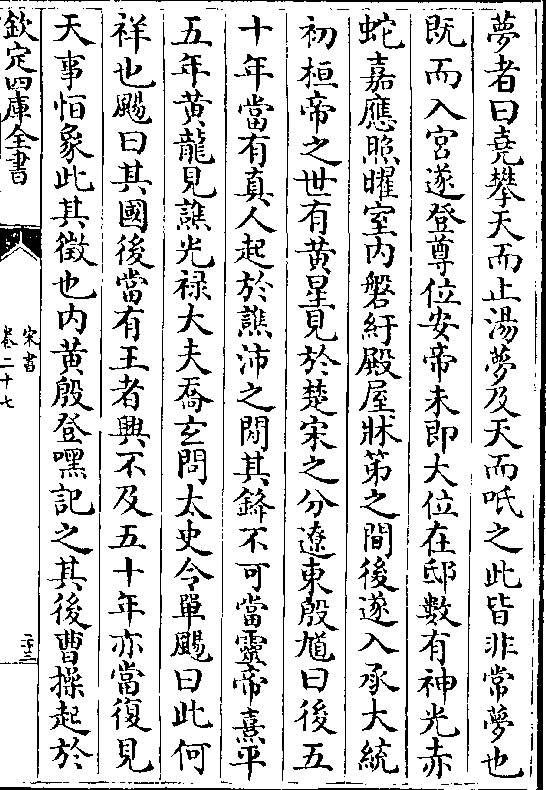 夢者曰堯攀天而上湯夢及天而呧之此皆非常夢也
既而入宮遂登尊位安帝未即大位在邸數有神光赤
蛇嘉應照曜室内磐紆殿屋牀笫之間後遂入承大統
初桓帝之世有黄星見於楚宋之分遼東殷馗曰後五
十年當有真人起於譙沛之閒其鋒不可當靈帝熹平
五年黄龍見譙光禄大夫喬玄問太史令單颺曰此何
祥也颺曰其國後當有王者興不及五十年亦當復見
天事恒象此其徴也内黄殷登嘿記之其後曹操起於
欽定四庫全書
宋書
卷二十七